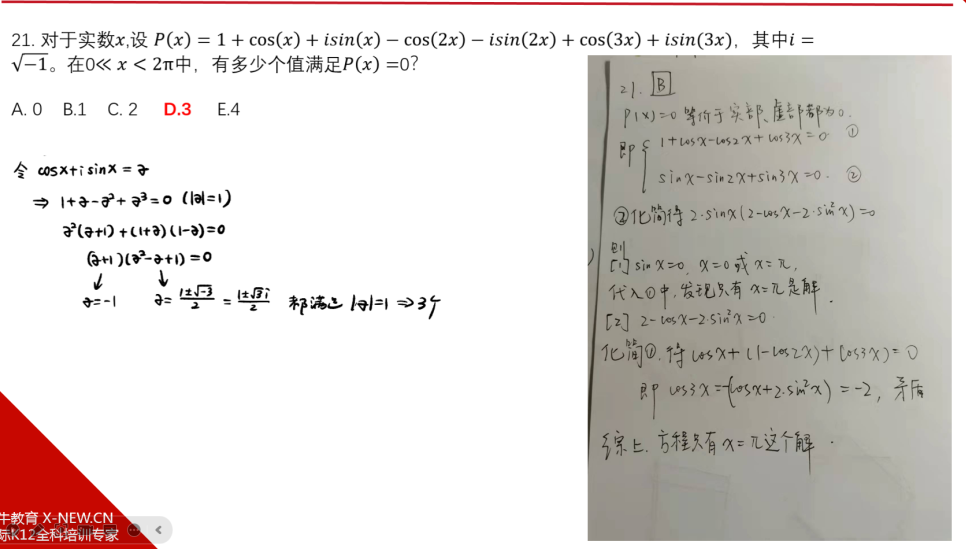 21. 对于实数x,设 P(x) = 1 + cos(x) + isin(x) − cos(2x) − isin(2x) + cos(3x) + isin(3x)，其中i =
√−1。在0≪ x < 2π中，有多少个值满足P(x) =0?
A. 0 B.1 C. 2 D.3 E.4
令 cosx+isinx = z
⇒ 1+z-z²+z³=0 (|z|=1)
z²(z+1)+(1+z)(1-z)=0
(z+1)(z²-z+1)=0
z=-1 z= (1±√-3)/2 = (1±√3i)/2 都满足 |z|=1 ⇒3个
21. B
P(x)=0 等价于实部、虚部都为0.
即 { 1+cosx-cos2x+cos3x=0 ①
sinx-sin2x+sin3x=0. ②
②化简得 2·sinx(2-cosx-2·sin²x)=0
则
[1] sinx=0, x=0或x=π,
代入①中,发现只有x=π是解.
[2] 2-cosx-2·sin²x=0
化简①,得 cosx+(1-cos2x)+cos3x)=0
即 cos3x=-(cosx+2·sin²x)=-2, 矛盾
综上,方程只有x=π这个解.
牛教育 X-NEW.CN
际K12全科培训专家